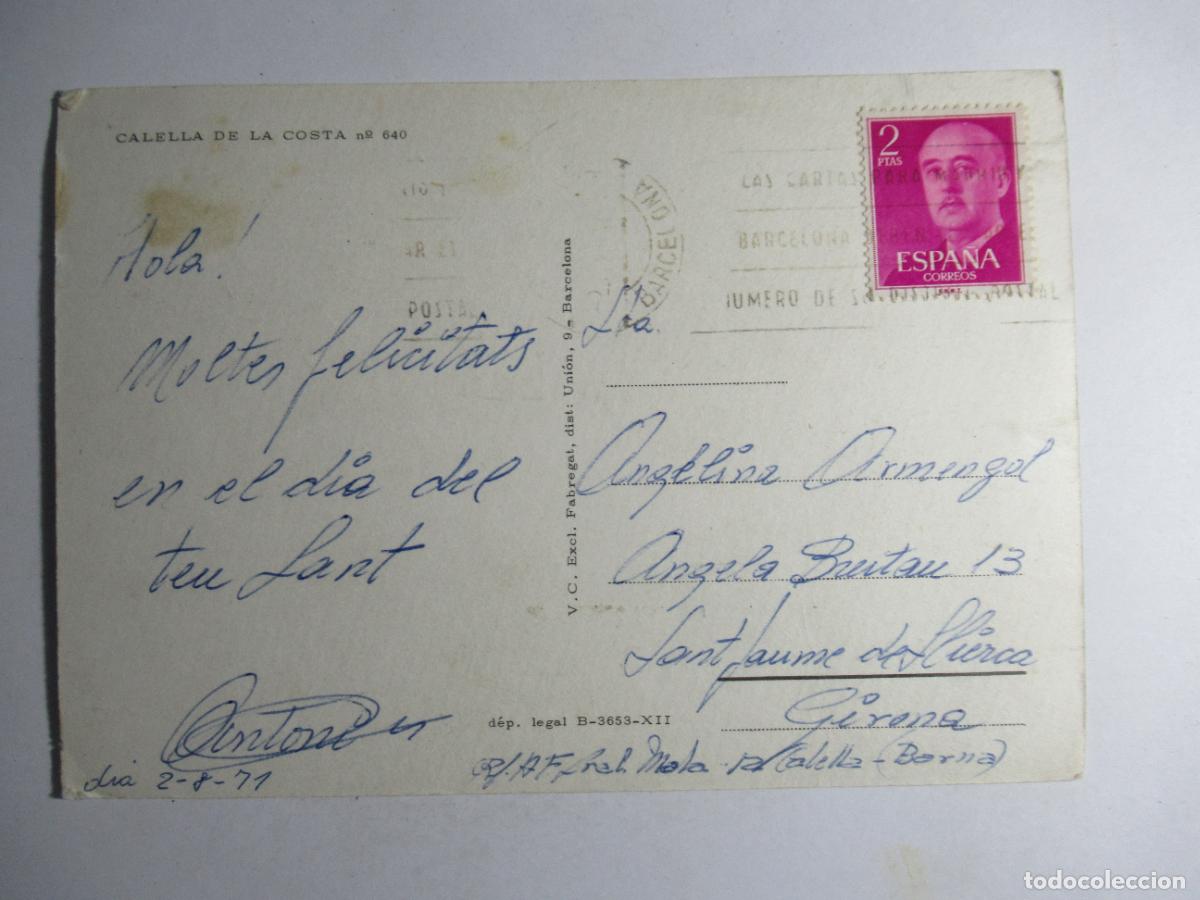 CALELLA DE LA COSTA nº 640
Hola!
Moltes felicitats
en el dia del
teu Sant
Antoni
dia 2-8-71
V. C. Excl. Fabregat, dist: Unión, 9 - Barcelona
dép. legal B-3653-XII
2
PTAS
ESPAÑA
CORREOS
BARCELONA
LAS CARTAS PARA MADRID Y
BARCELONA DEBEN
NUMERO DE SU DISTRITO POSTAL
POSTAL
Sta.
Angelina Armengol
Angela Butau 13
Sant Jaume de Llierca
Girona
Mola Calella - (Barna)
todocoleccion